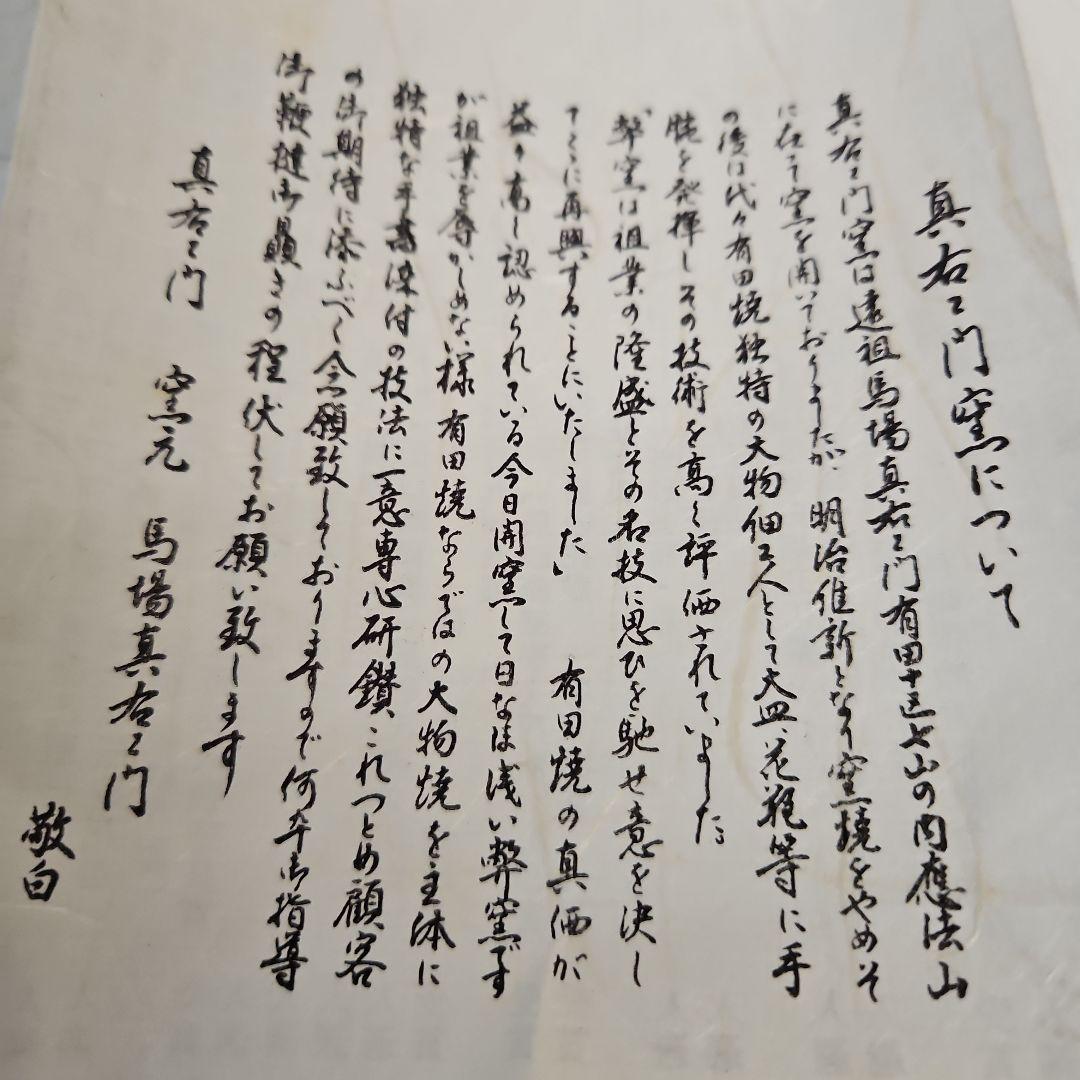 真右エ門窯について
真右エ門窯は遠祖馬場真右エ門有田十三七山の内應法山
に在て窯を開いておりましたが、明治維新となり窯焼をやめそ
の後は代々有田焼独特の大物細工人として大皿、花瓶等に手
腕を発揮しその技術を高く評価されていました
弊窯は祖業の隆盛とその名技に思ひを馳せ意を決し
てここに再興することにいたしました」 有田焼の真価が
益々高く認められている今日開窯して日なほ浅い弊窯です
が祖業を辱かしめない様有田焼ならではの大物焼を主体に
独特な手書染付の技法に一意専心研鑽、これつとめ顧客
の御期待に添ふべく念願致しておりますので何卒御指導
御鞭撻御贔きの程伏してお願い致します
真右エ門 窯元 馬場真右エ門
敬白